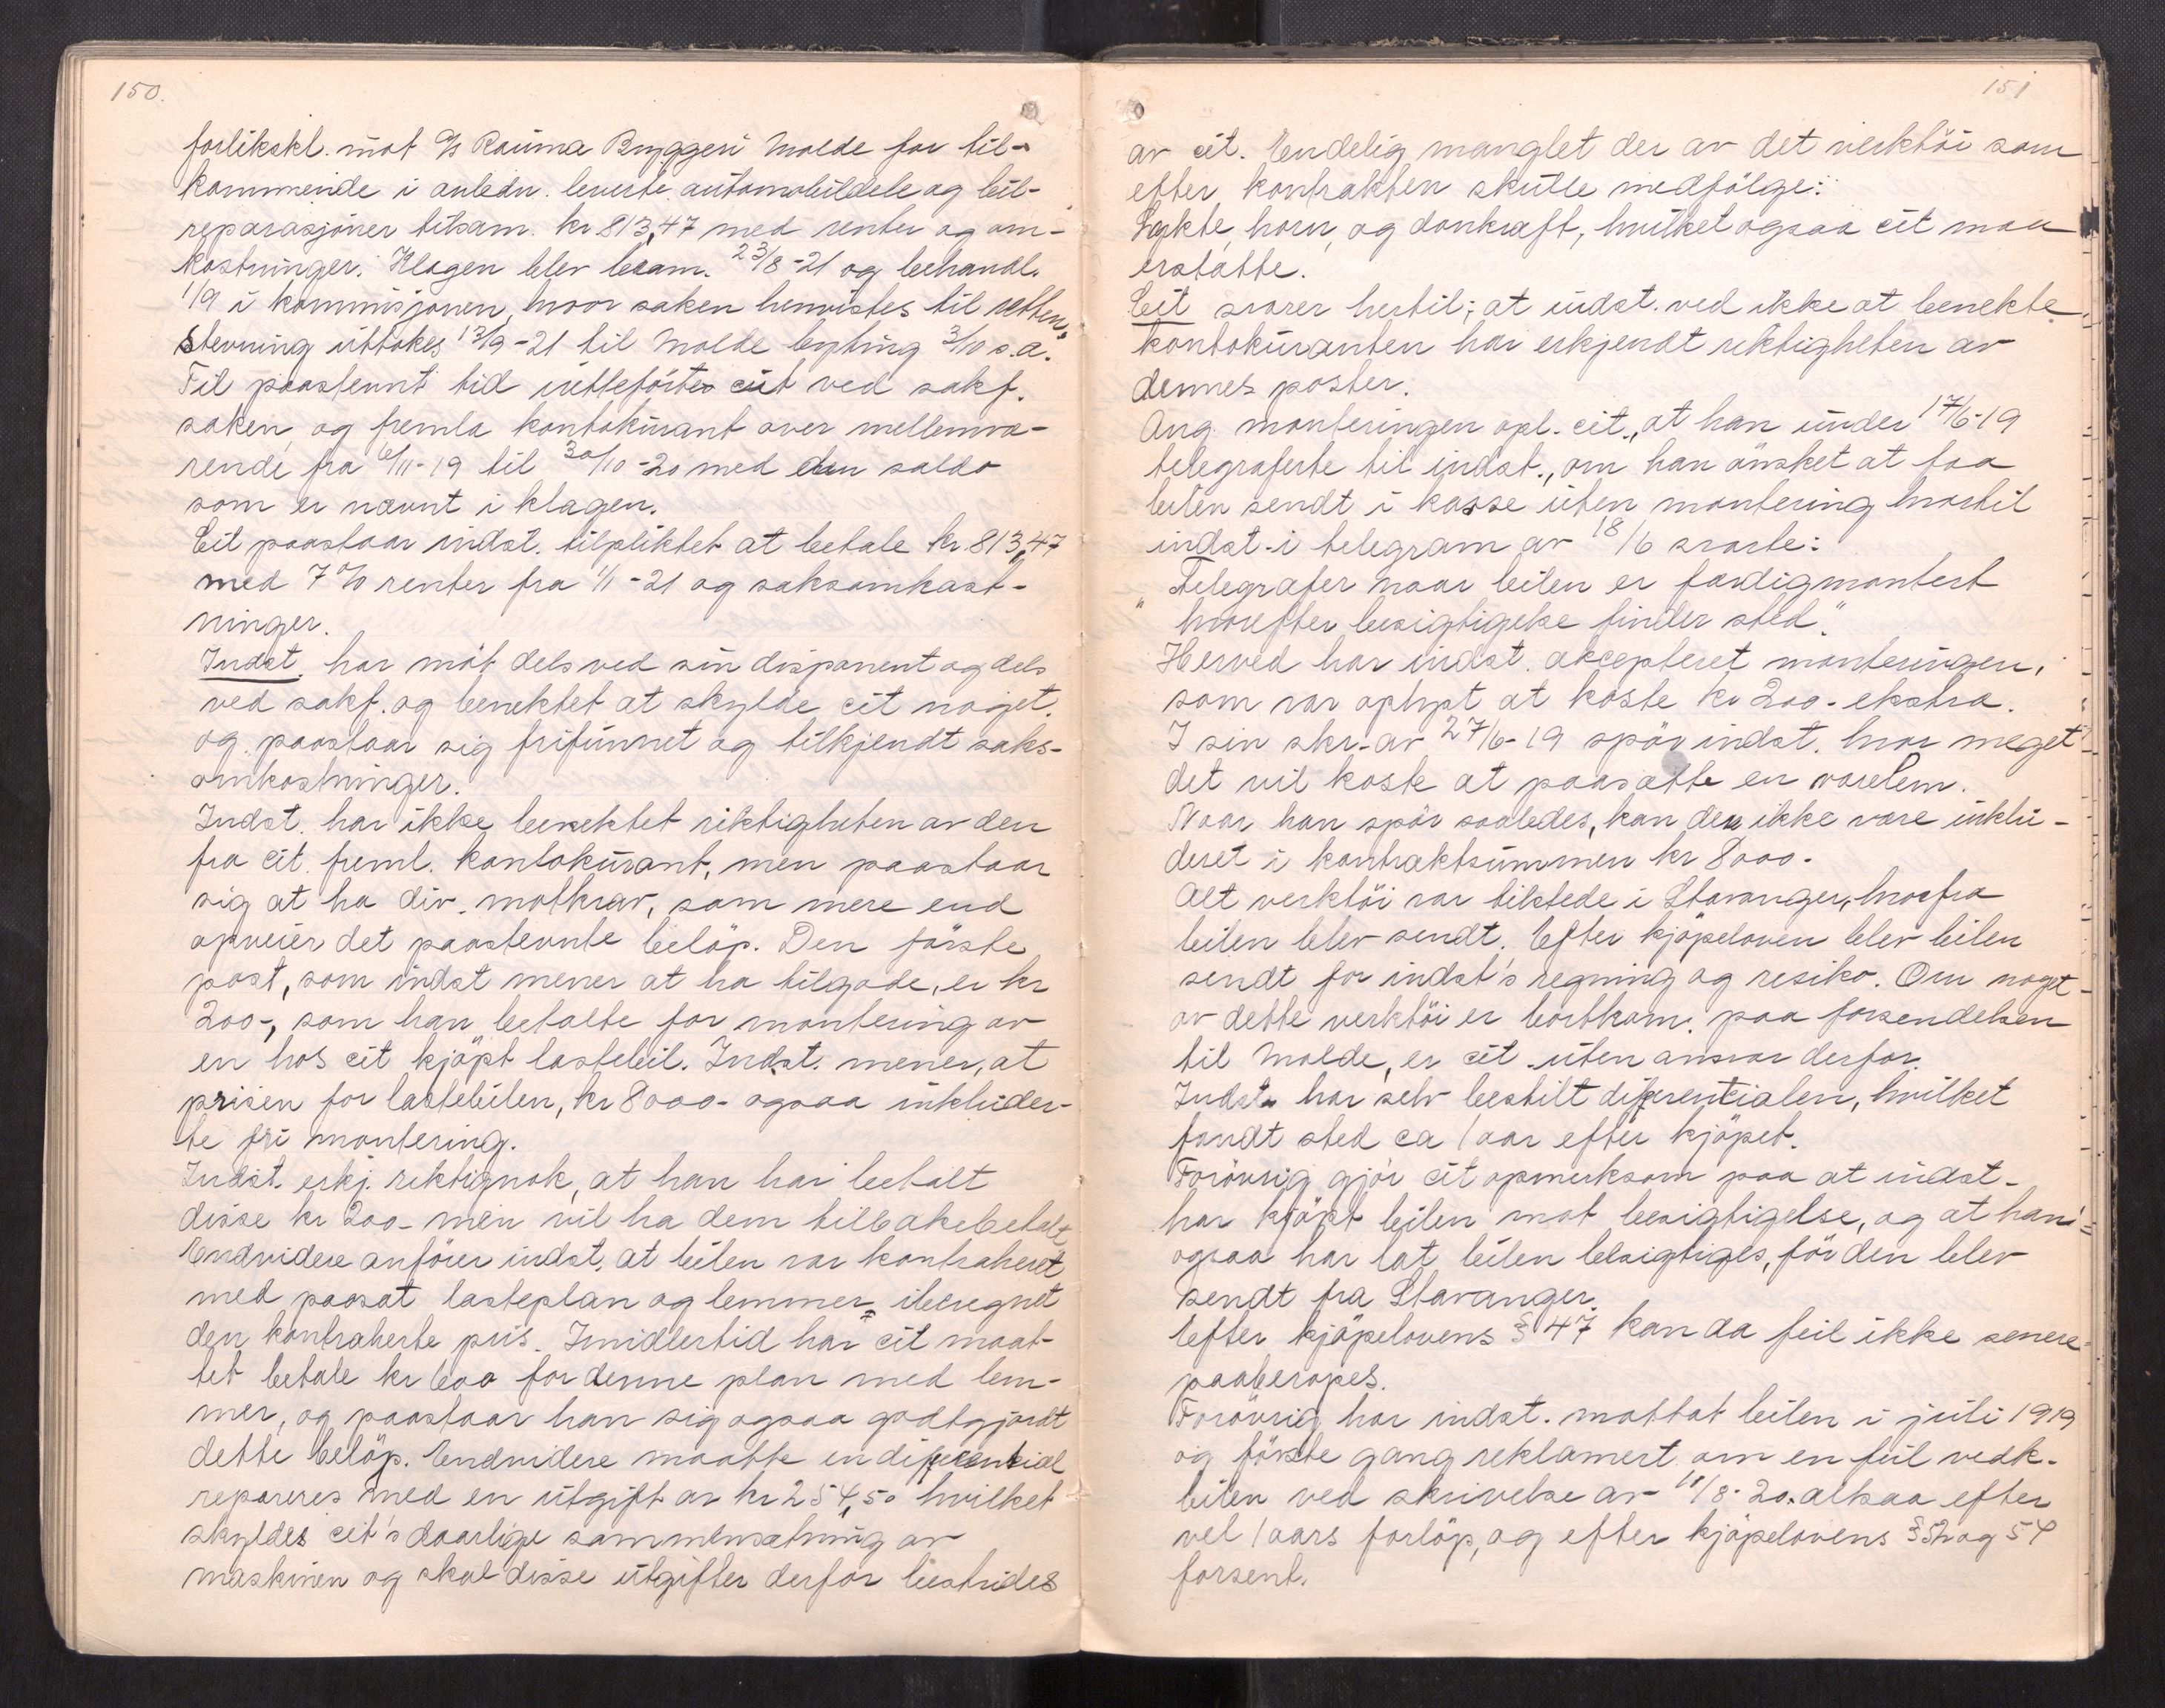 150.
forlikskl. mot A/S Rauma Bryggeri Molde for til-
kommende i anledn. leverte automobildele og bil-
reparasjoner tilsam. kr 813,47 med renter og om-
kostninger. Klagen blev beram. 23/8-21 og behandl.
1/9 i kommisjonen, hvor saken henvistes til retten.
Stevning uttokes 13/9-21 til Molde byting 3/10 s.a.
Til paastevnt tid inkleförtes cit ved sakf.
saken og fremla kontokurant over mellemvæ-
rende fra 6/11-19 til 30/10-20 med den saldo
som er nævnt i klagen.
Cit paastaar indst. tilpliktet at betale kr. 813,47
med 7 % renter fra 1/1-21 og saksomkost-
ninger.
Indst. har möt dels ved sin disponent og dels
ved sakf. og benektet at skylde cit noget.
og paastaar sig frifunnet og tilkjendt saks-
omkostninger.
Indst. har ikke benektet riktigheten av den
fra cit. freml. kontokurant, men paastaar
sig at ha div. motkrav, som mere end
opveier det paastevnte belöp. Den förste
post, som indst mener at ha tilgode, er kr
200-, som han betalte for montering av
en hos cit kjöpt lastebil. Indst. mener, at
prisen for lastebilen, kr 8000- ogsaa inkluder-
te fri montering.
Indst. erkj. riktignok, at han har betalt
disse kr 200- men vil ha dem tilbakebetalt,
Endvidere anförer indst, at bilen var kontraheret
med paasat lasteplan og lemmer, iberegnet
den kontraherte pris. Imidlertid har cit maat-
tet betale kr 600 for denne plan med lem-
mer, og paastaar han sig ogsaa godtgjordt
dette belöp. Endvidere maatte en differential
repareres med en utgift av kr 254,50 hvilket
skyldes cit's daarlige sammensætning av
maskinen og skal disse utgifter derfor bestrides
151
av cit. Endelig manglet der av det verktöi som
efter kontrakten skulle medfölge:
Lykte, horn, og donkraft, hvilket ogsaa cit maa
erstatte.
Cit svarer hertil; at indst. ved ikke at benekte
kontokuranten har erkjendt riktigheten av
dennes poster.
Ang. monteringen opl. cit., at han under 17/6-19
telegraferte til indst., om han önsket at faa
bilen sendt i kasse uten montering hvortil
indst. i telegram av 18/6 svarte:
Telegrafer naar bilen er færdigmontert
" hvorefter besigtigelse finder sted".
Herved har indst. akcepteret monteringen,
som var oplyst at koste kr 200- ekstra.
I sin skr. av 27/6-19 spör indst. hvor meget
det vil koste at paasætte en varelem.
Naar han spör saaledes, kan den ikke være inklu-
deret i kontraktsummen kr 8000-
Alt verktöi var tilstede i Stavanger, hvorfra
bilen blev sendt. Efter kjöpeloven blev bilen
sendt for indst's regning og resiko. Om noget
av dette verktöi er bortkom. paa forsendelsen
til Molde, er cit uten ansvar derfor.
Indst. har selv bestilt differentialen, hvilket
fandt sted ca 1 aar efter kjöpet.
Forövrig gjör cit opmerksom paa at indst-
har kjöpt bilen mot besigtigelse, og at han
ogsaa har lat bilen besigtiges, för den blev
sendt fra Stavanger.
Efter kjöpelovens § 47 kan da feil ikke senere
paaberopes.
Forövrig har indst. mottat bilen i juli 1919
og förste gang reklamert om en feil vedk.
bilen ved skrivelse av 11/8-20. altsaa efter
vel 1 aars forlöp, og efter kjöpelovens § 52 og 54
forsent.